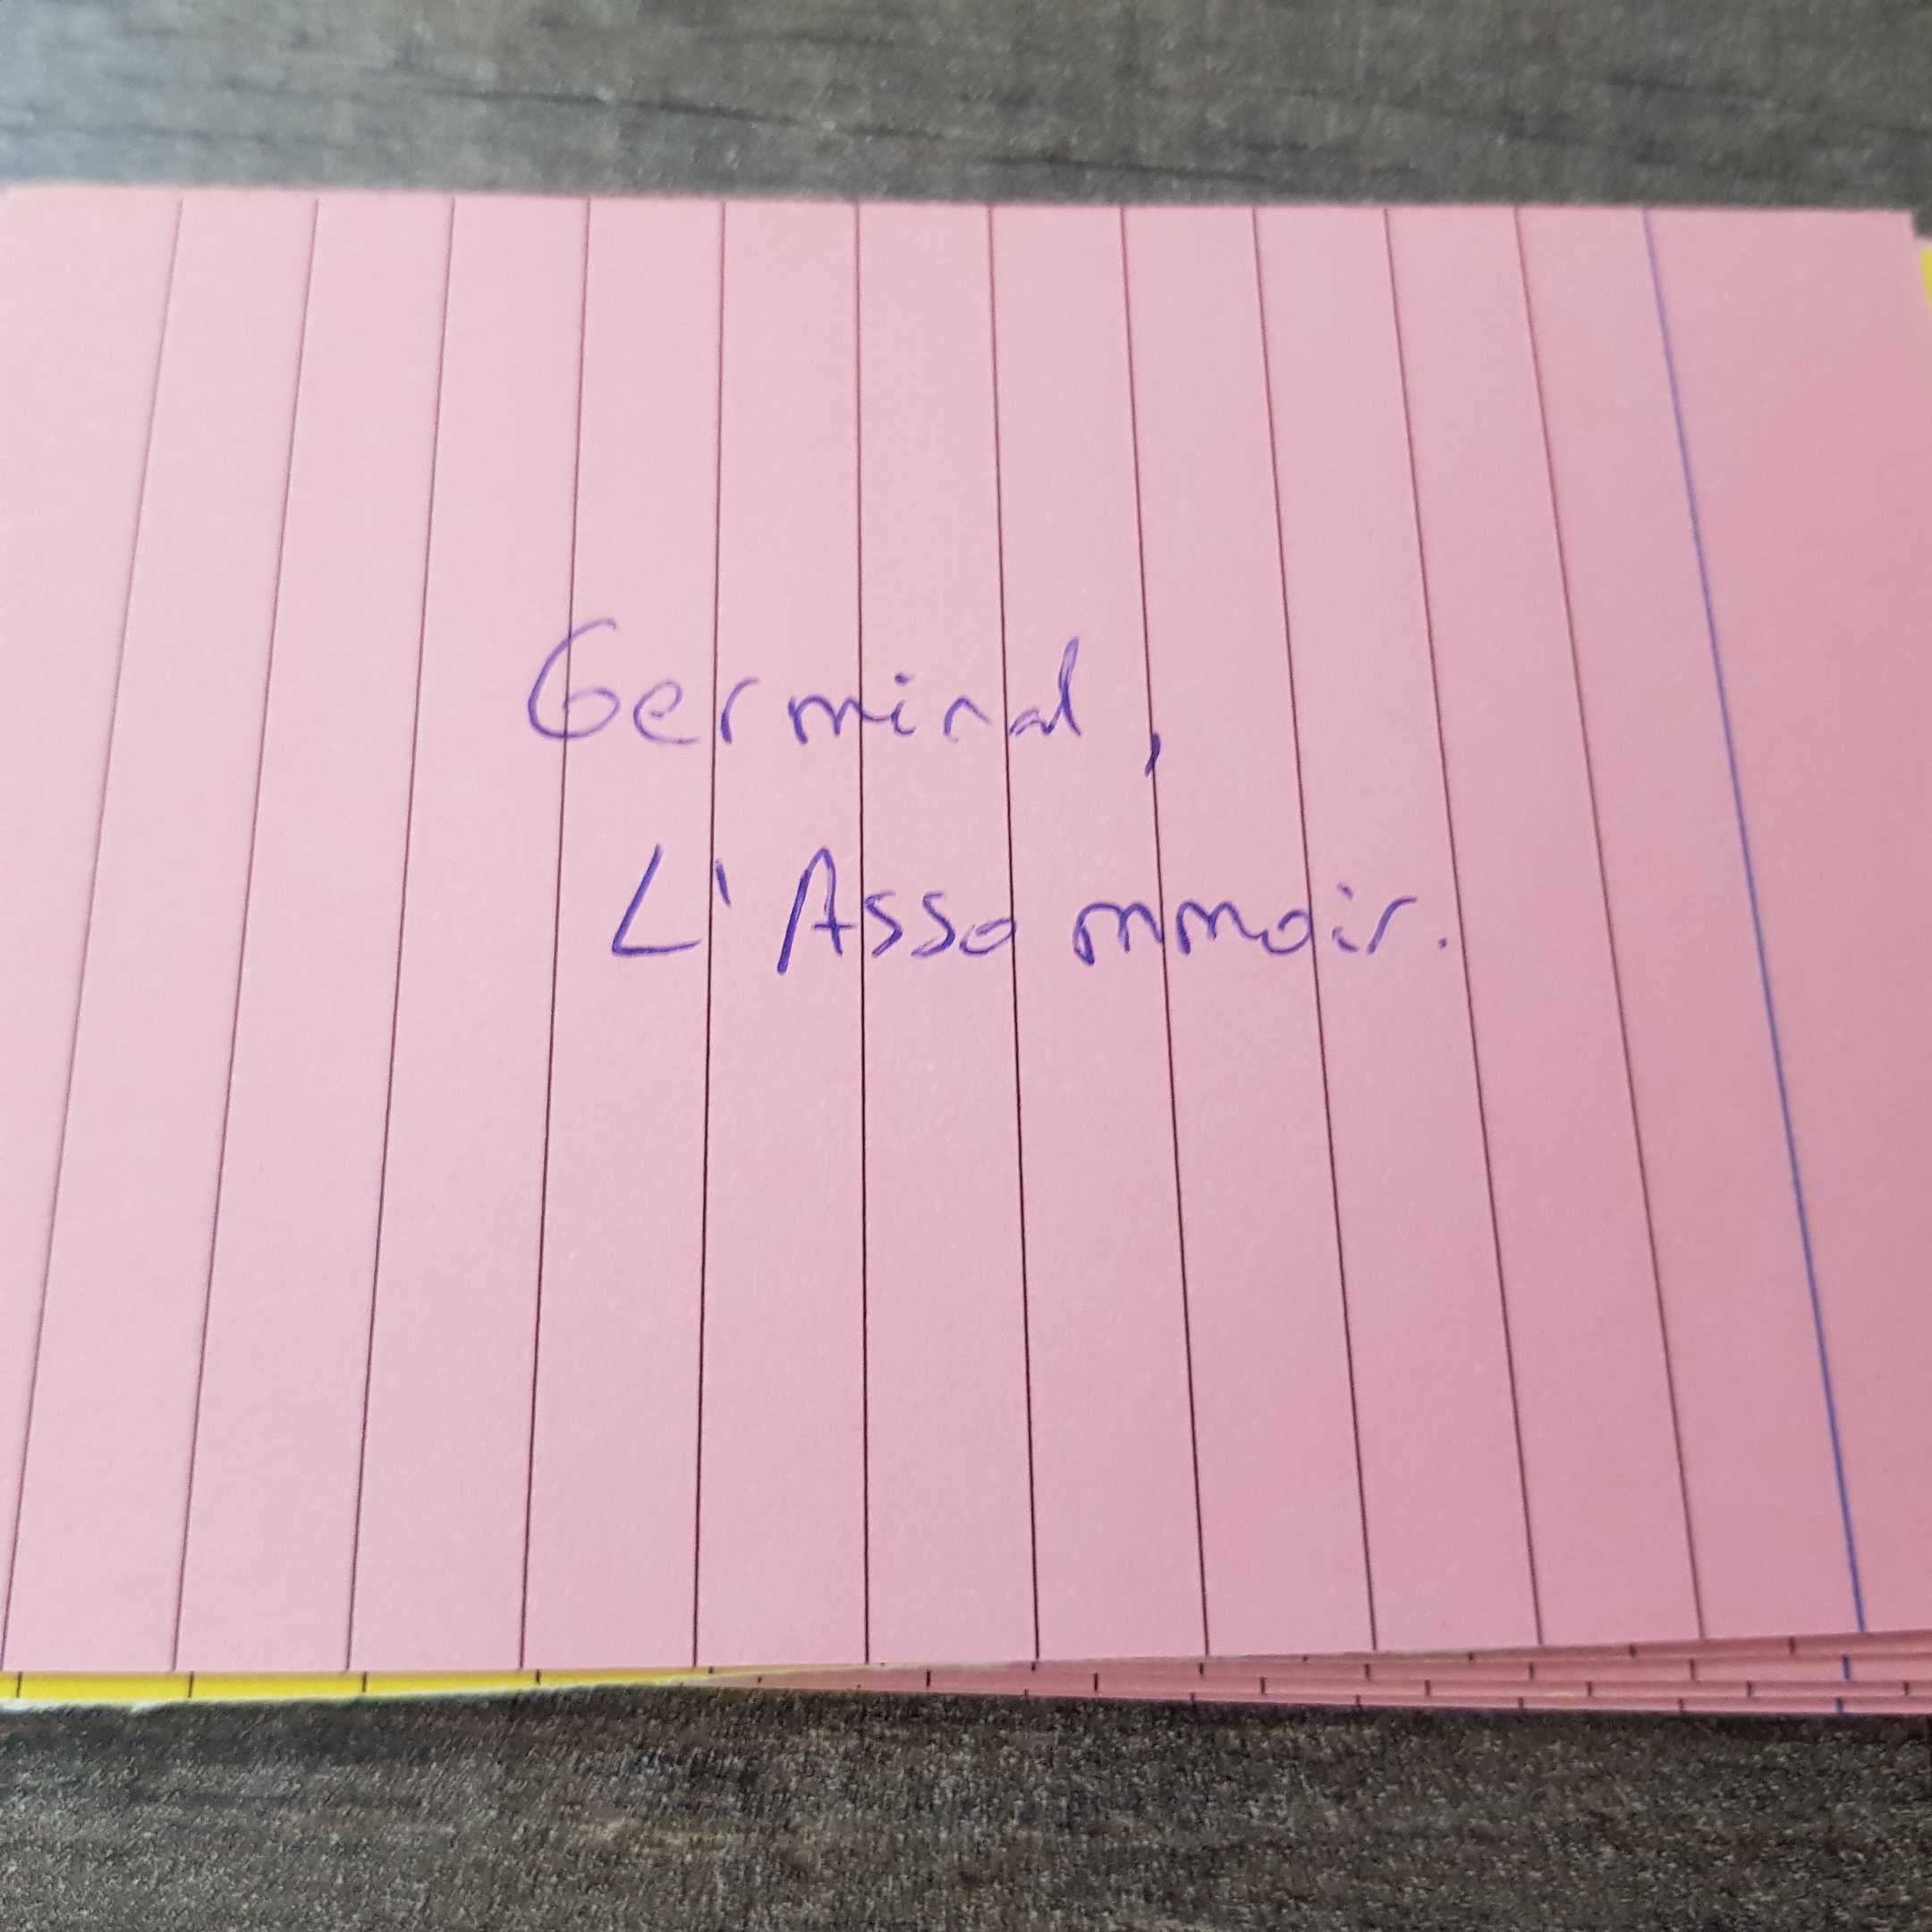 Germinal,
L'Assommoir.